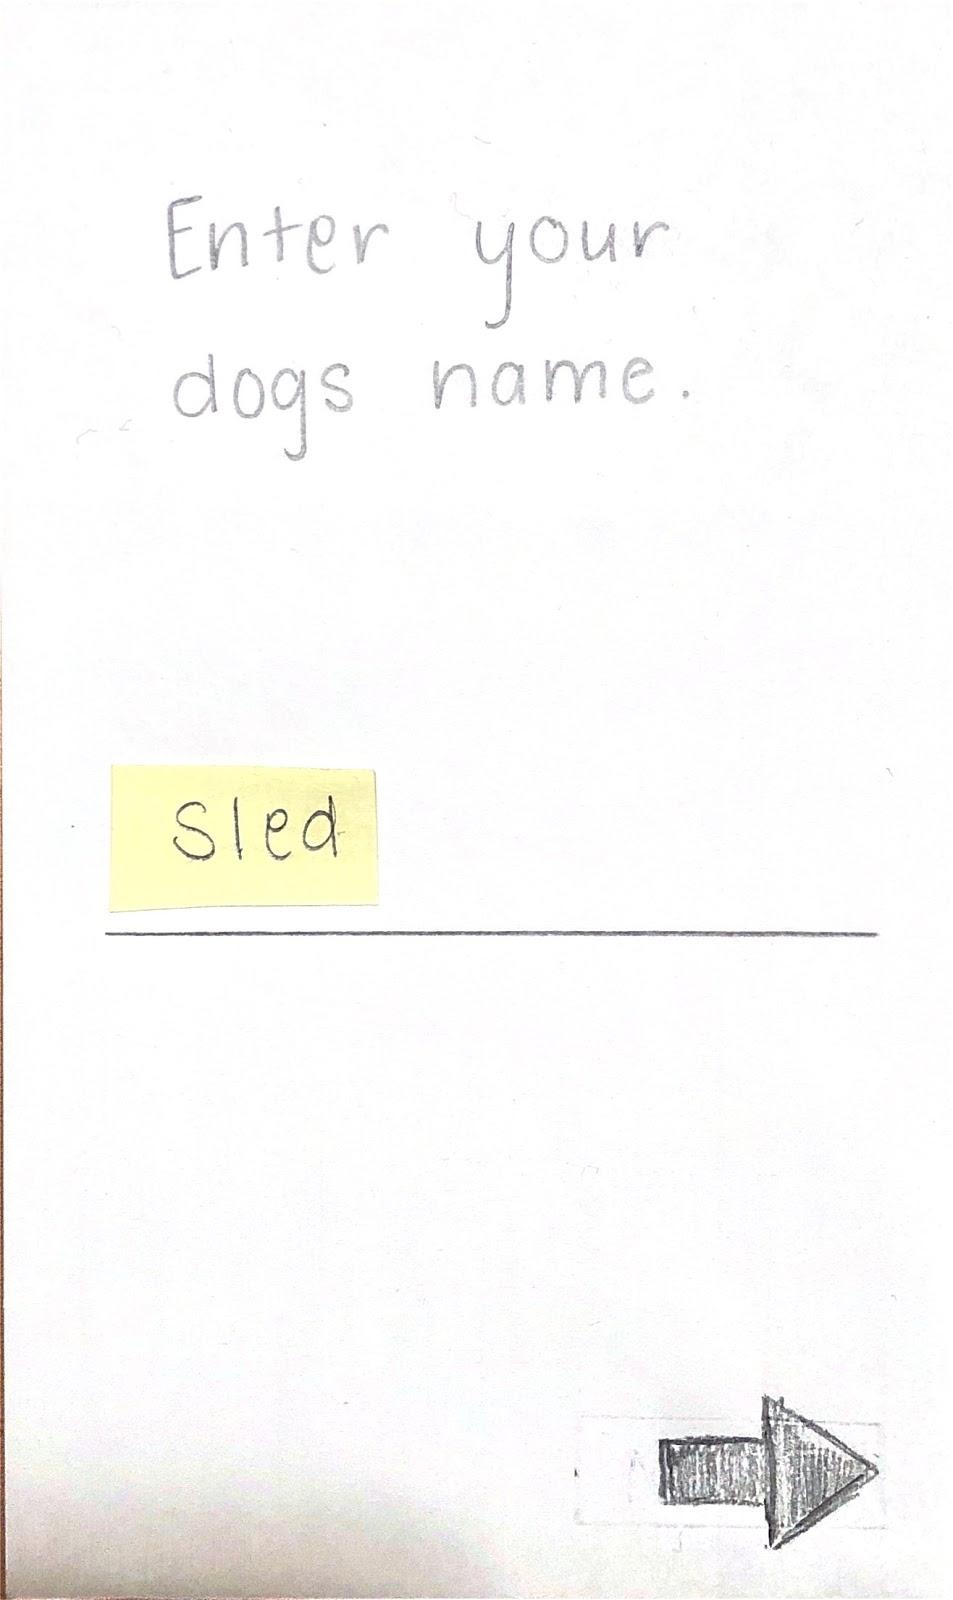 Enter your
dogs name.
Sled